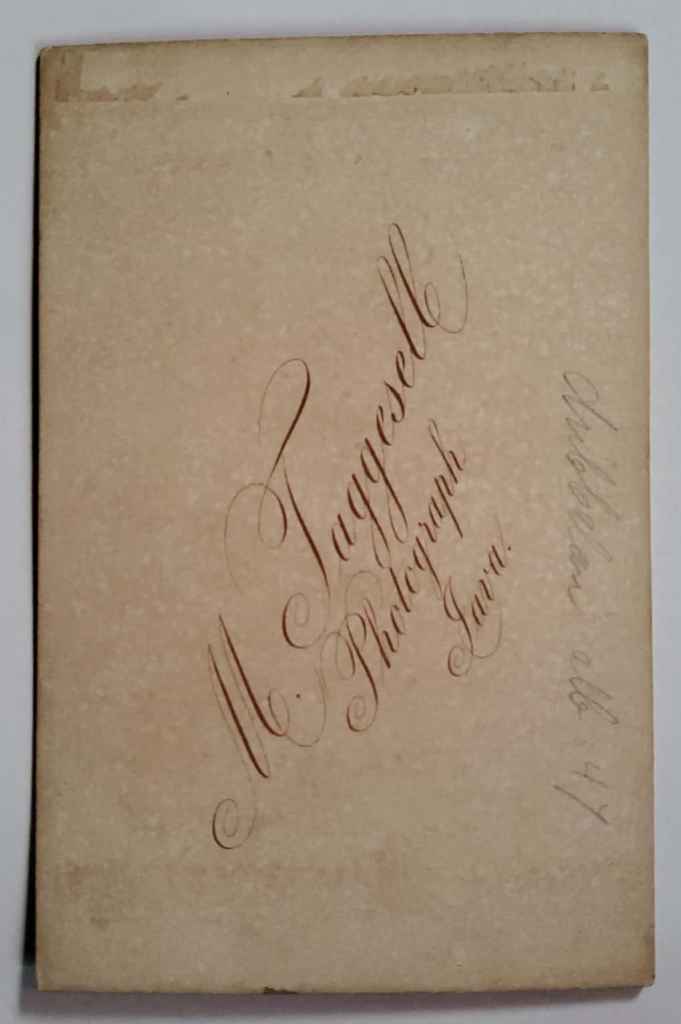 M. Taggesell
Photograph
Java.
alb. 47